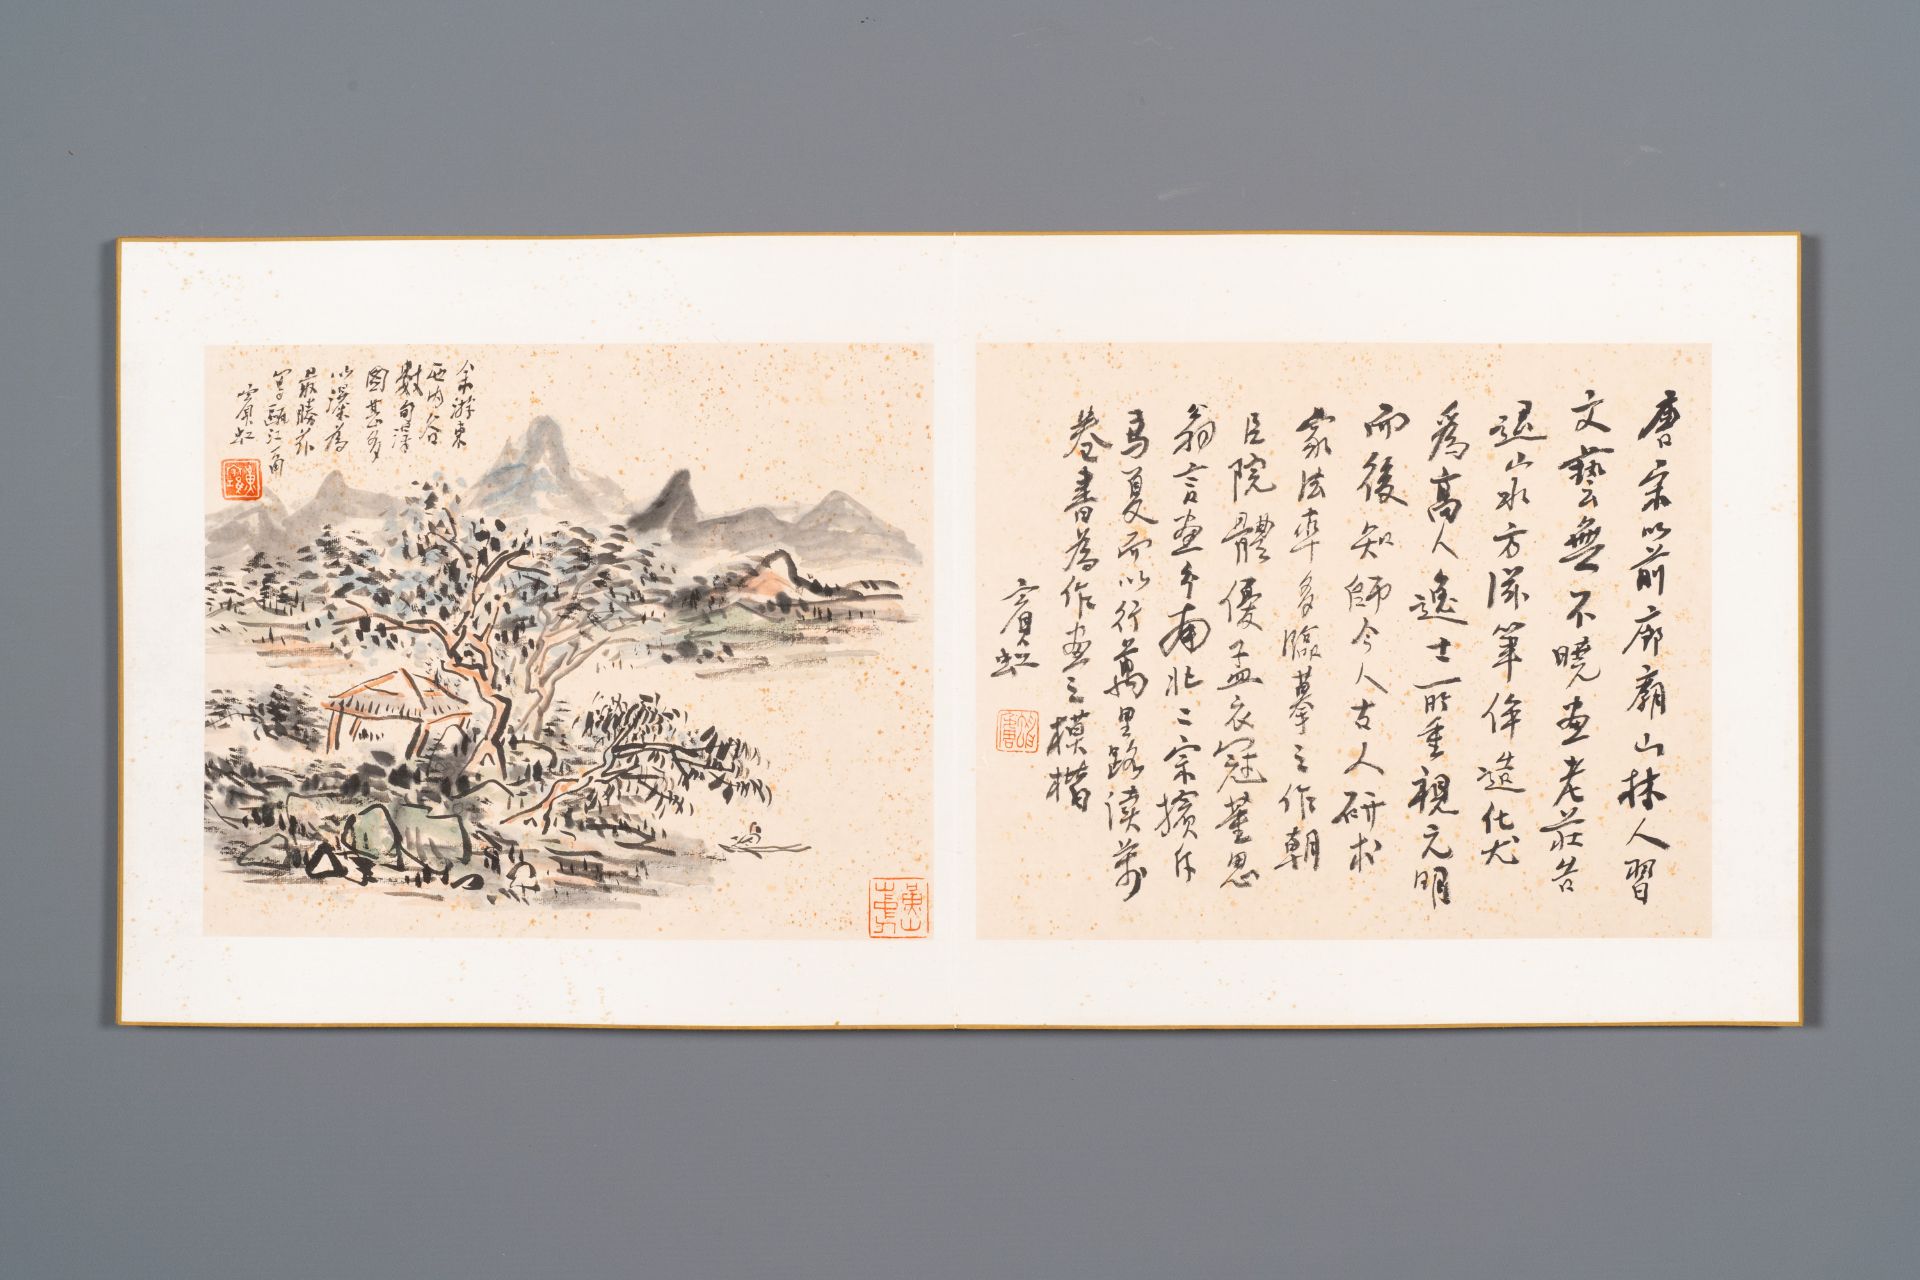 唐宋以前廊廟山林人習
文藝無不曉畫老莊告
退山水方滋筆侔造化尤
爲高人逸士所重視元明
而後知師今人古人研求
家法率多臨摹之作朝
臣院體優孟衣冠董思
翁言畫分南北二宗擯斥
馬夏而以行萬里路讀萬
卷書爲作畫之模楷
賓虹
余游東
西內谷
數旬得
圖甚多
以深爲
最勝茲
寫甌江一角
賓虹